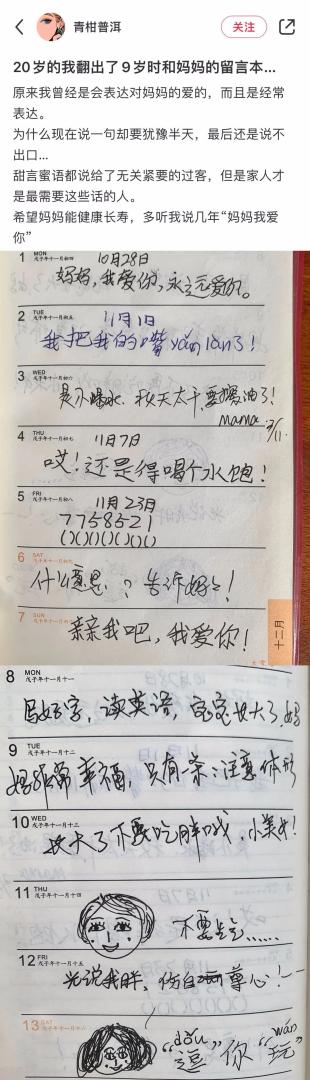 青柑普洱
关注
20岁的我翻出了9岁时和妈妈的留言本...
原来我曾经是会表达对妈妈的爱的，而且是经常
表达。
为什么现在说一句却要犹豫半天，最后还是说不
出口...
甜言蜜语都说给了无关紧要的过客，但是家人才
是最需要这些话的人。
希望妈妈能健康长寿，多听我说几年“妈妈我爱
你”
1 MON
戊子年十一月初四
10月28日
妈妈，我爱你，永远爱你。
2 TUE
戊子年十一月初五
11月1日
我把我的嘴yǎo làn了！
3 WED
戊子年十一月初六
是不喝水，秋天太干，要擦油了！
mama
4 THU
戊子年十一月初七
11月7日
哎！还是得喝个水饱！
5 FRI
戊子年十一月初八
11月23日
7758521
()()()()()()()
6 SAT
什么意思？告诉妈妈！
7 SUN
亲亲我吧，我爱你！
十二月
8 MON
戊子年十一月十一
写好字，读英语，宝宝长大了，妈
9 TUE
戊子年十一月十二
妈非常幸福，只有一条：注意体形
10 WED
戊子年十一月十三
长大了不要吃胖哦，小美女！
11 THU
戊子年十一月十四
不要生气……
12 FRI
戊子年十一月十五
光说我胖，伤自尊心！
13 SAT
“dòu
逗”你“wán
玩”